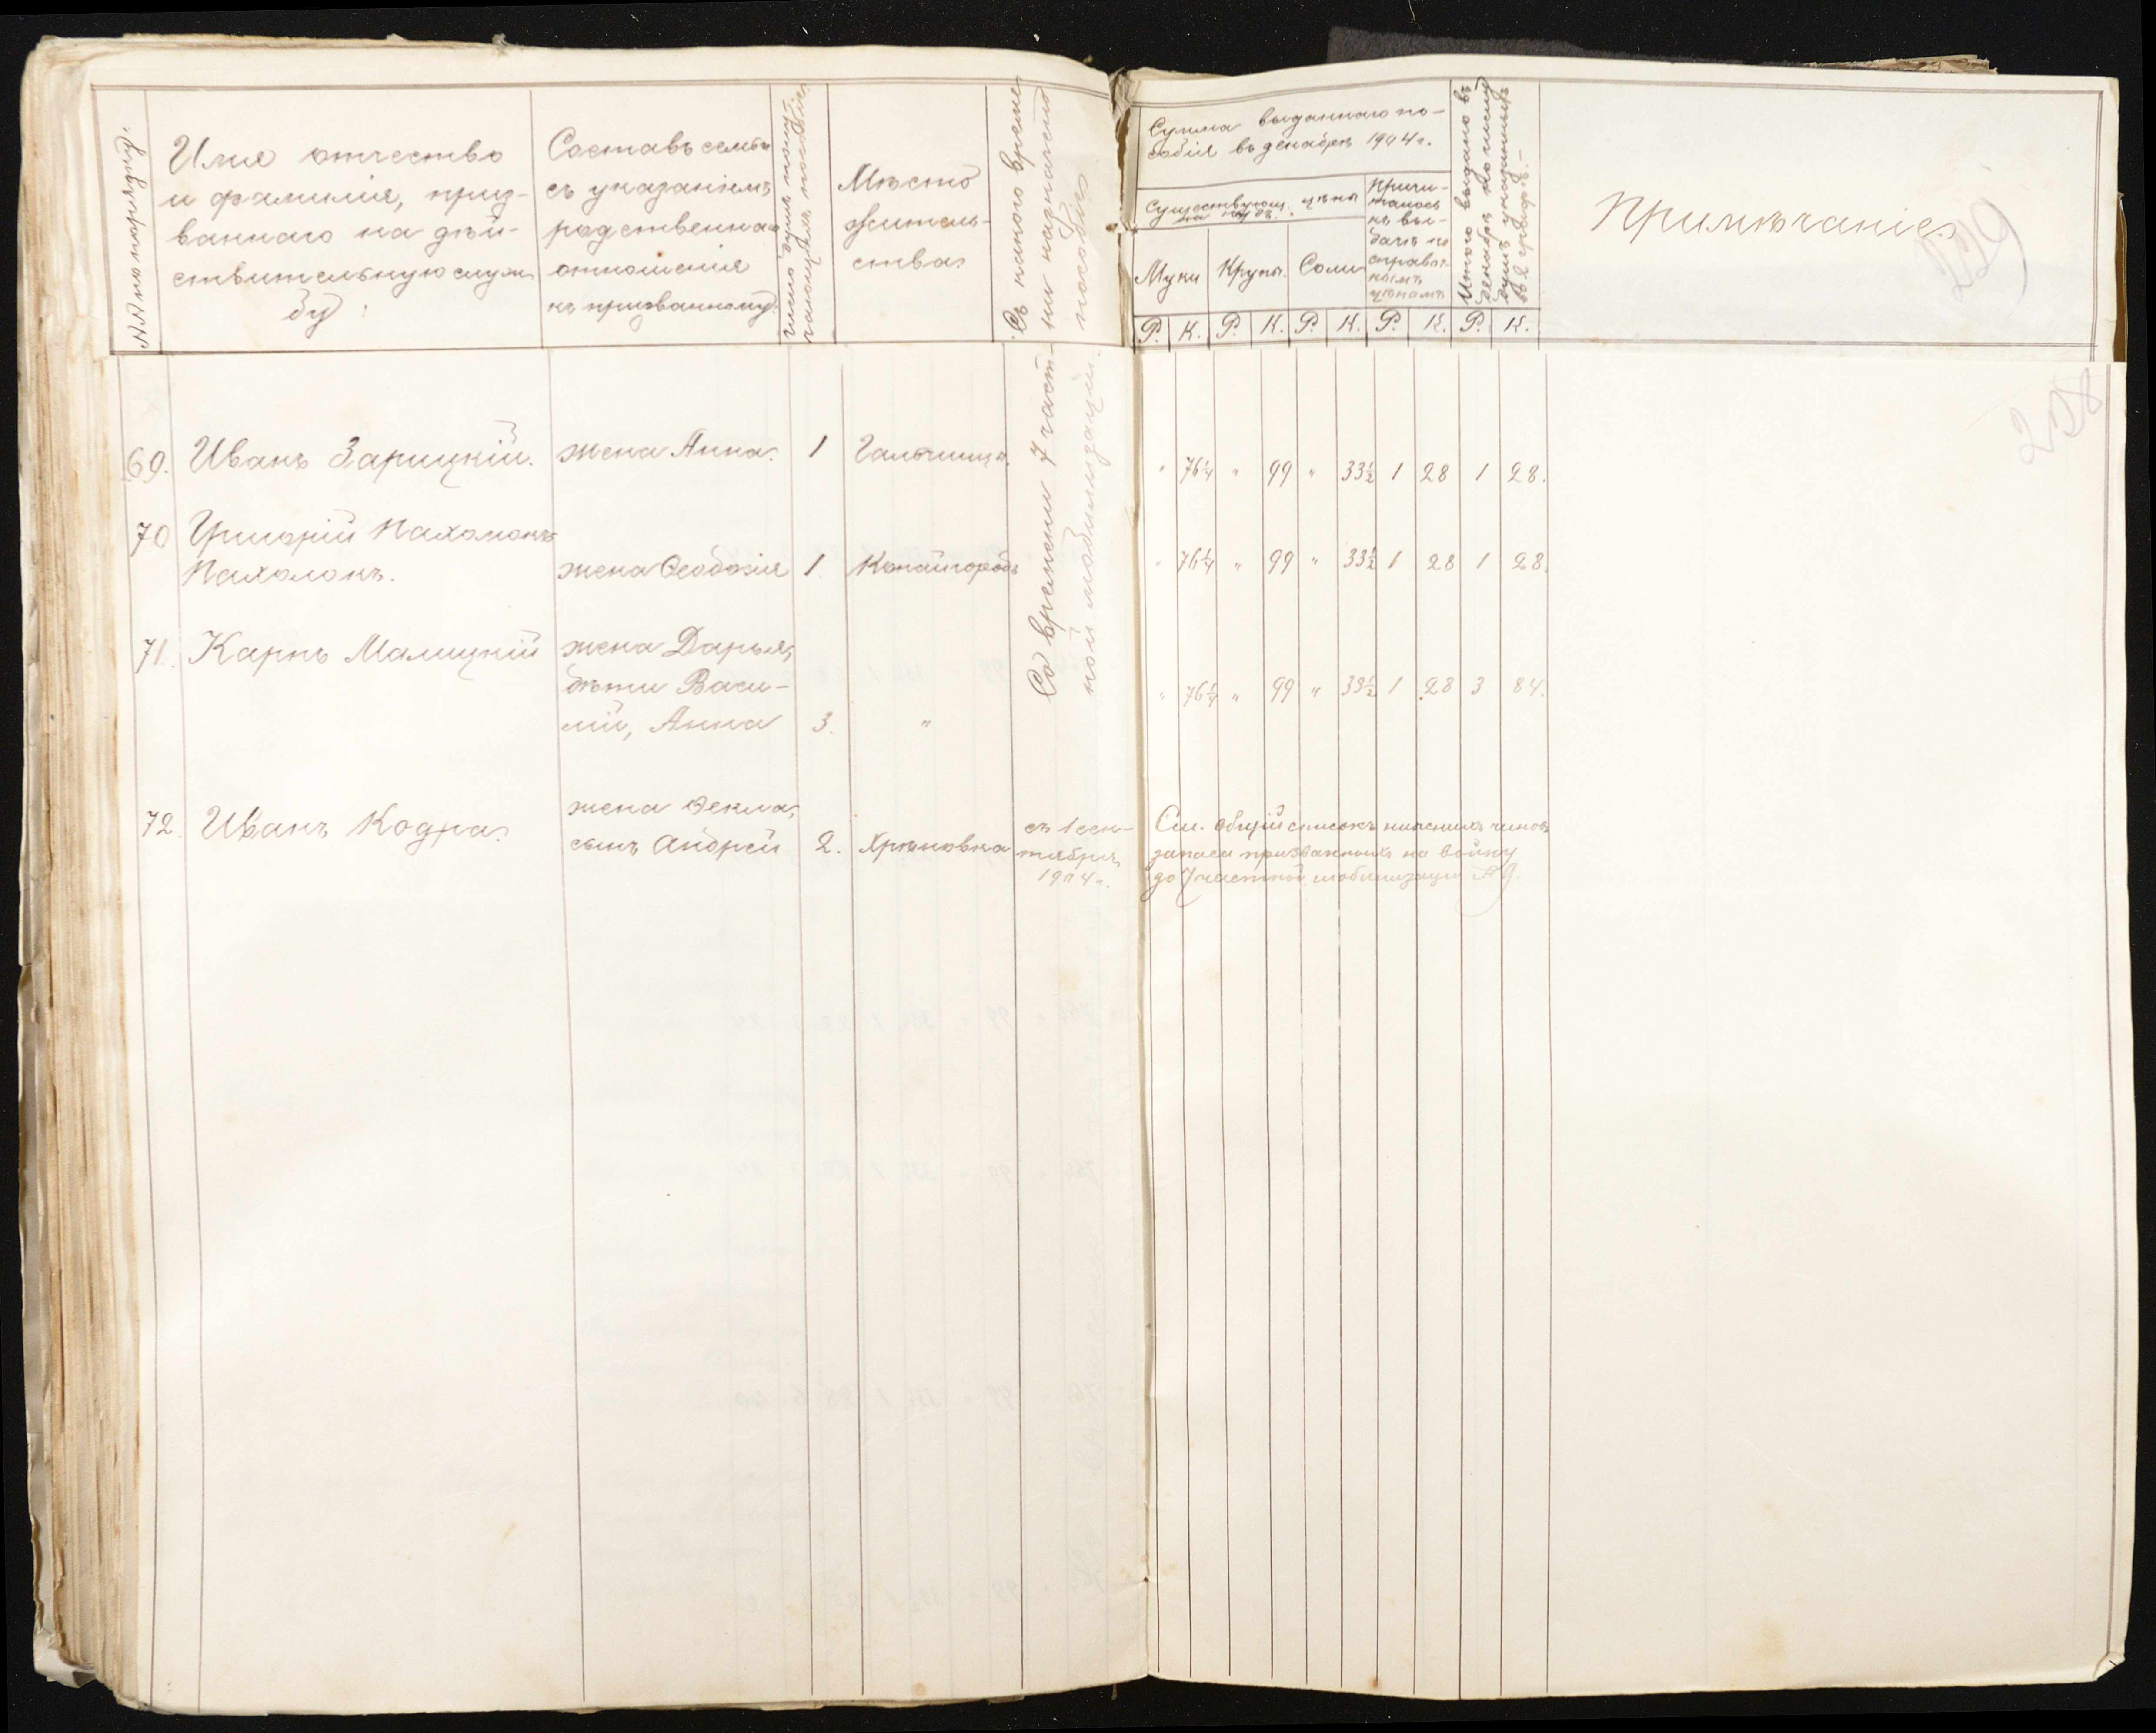 №№ по порядку.
Имя отчество
и фамилія, приз-
ваннаго на дѣй-
ствительную служ
бу
Составъ семьи
съ указаніемъ
родственнаго
отношенія
къ призванному
Число душъ полу-
чающихъ пособіе
Мѣсто
житель-
ства
Съ какого време-
ни назначено
пособіе
Сумма выданнаго по-
собія въ декабрѣ 1904 г.
Существующ. цѣны
на пудъ
Муки
Крупы.
Соли
Причи-
талось
къ вы-
дачѣ по
справоч
нымъ
цѣнамъ
Итого выдано въ
декабрѣ по числу
душъ указанныхъ
въ графѣ
Примѣчаніе
Р. К. Р. К. Р. К. Р. К. Р. К.
229
228
Со времени 7 част-
ной мобилизаціи.
69. Иванъ Зарицкій. жена Анна. 1 Гальчинца. " 76¼ " 99 " 33½ 1 28 1 28.
70 Григорій Пахолокъ
Пахолокъ. жена Феодосія 1. Копайгородъ " 76¼ " 99 " 33½ 1 28 1 28.
71. Карпъ Малицкій жена Дарья,
дѣти Васи-
лій, Анна 3. " " 76¼ " 99 " 33½ 1 28 3 84.
72. Иванъ Кодра жена Фекла,
сынъ Андрей 2. Хрѣновка
съ 1 сен-
тября
1904 г.
См. общій списокъ нижнихъ чиновъ
запаса призванныхъ на войну
до 7 частной мобилизаціи